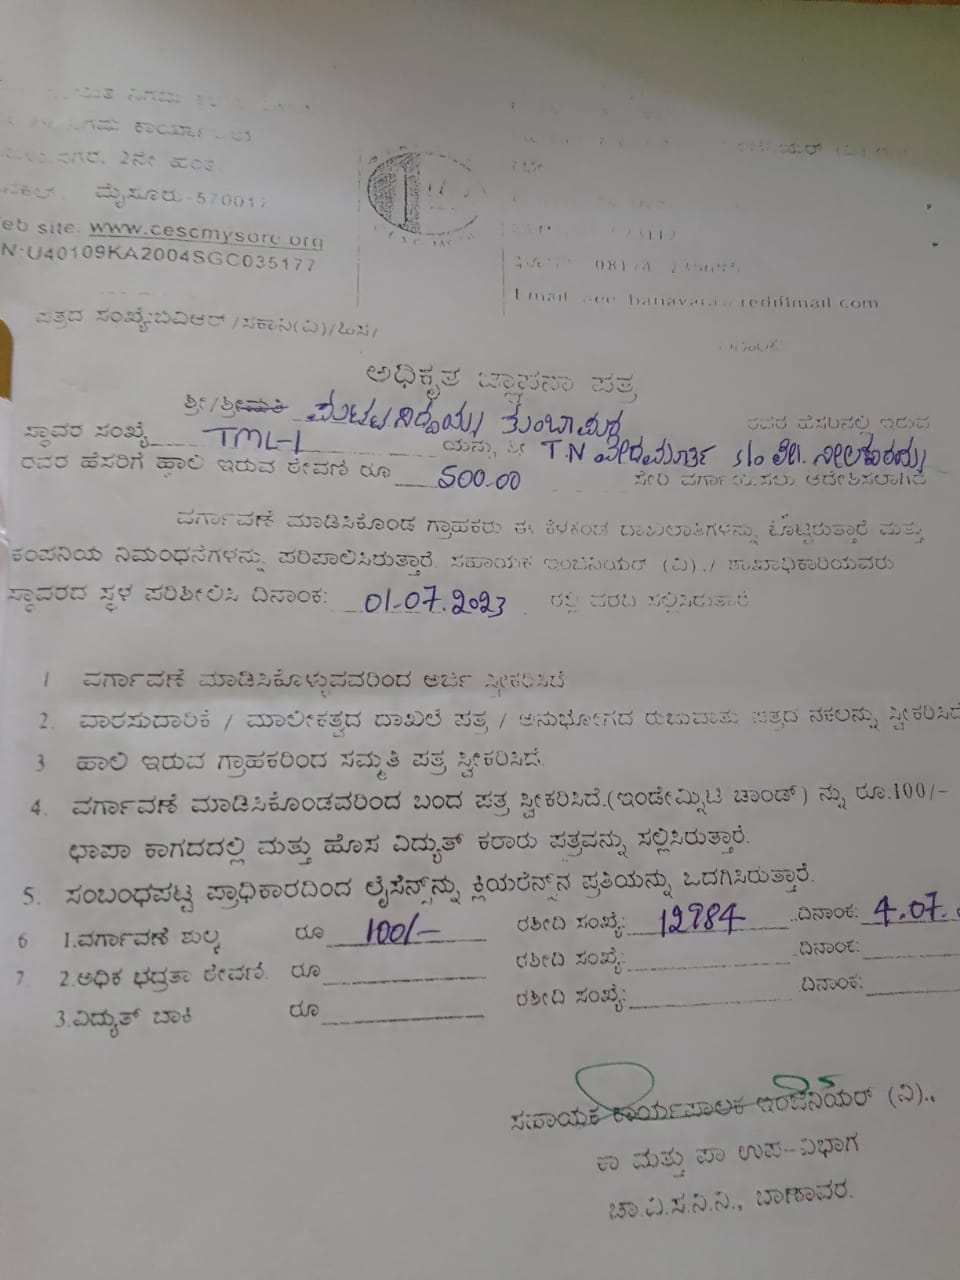 ನಿಗಮ
ನಿಗಮ ಕಾರ್ಯಾ
ನಗರ, 2ನೇ ಹಂತ
ಮೈಸೂರು-570017
eb site: www.cescmysore.org
N:U40109KA2004SGC035177
08174
Email banavara rediffmail.com
ಪತ್ರದ ಸಂಖ್ಯೆ:ಬಿವಿಆರ್/ಸಕಾನಿ(ವಿ)/ಹಿಸ/
ಅಧಿಕೃತ ಜ್ಞಾಪನಾ ಪತ್ರ
ಶ್ರೀ/ಶ್ರೀಮತಿ ರವರ ಹೆಸರಿನಲ್ಲಿ ಇರುವ
ಸ್ಥಾವರ ಸಂಖ್ಯೆ TML-1 ಯನ್ನು ಶ್ರೀ T.N ವೇದಮೂರ್ತಿ s/o ಲೇ.
ರವರ ಹೆಸರಿಗೆ ಹಾಲಿ ಇರುವ ಠೇವಣಿ ರೂ 500.00 ಸೇರಿ ವರ್ಗಾಯಿಸಲು ಆದೇಶಿಸಲಾಗಿದೆ
ವರ್ಗಾವಣೆ ಮಾಡಿಸಿಕೊಂಡ ಗ್ರಾಹಕರು ಈ ಕೆಳಕಂಡ ದಾಖಲಾತಿಗಳನ್ನು ಕೊಟ್ಟಿರುತ್ತಾರೆ ಮತ್ತು
ಕಂಪನಿಯ ನಿಬಂಧನೆಗಳನ್ನು ಪರಿಪಾಲಿಸಿರುತ್ತಾರೆ. ಸಹಾಯಕ ಇಂಜಿನಿಯರ್ (ವಿ)./ ಶಾಖಾಧಿಕಾರಿಯವರು
ಸ್ಥಾವರದ ಸ್ಥಳ ಪರಿಶೀಲಿಸಿ ದಿನಾಂಕ: 01-07.2023 ರಲ್ಲಿ ವರದಿ ಸಲ್ಲಿಸಿರುತ್ತಾರೆ
1 ವರ್ಗಾವಣೆ ಮಾಡಿಸಿಕೊಳ್ಳುವವರಿಂದ ಅರ್ಜಿ ಸ್ವೀಕರಿಸಿದೆ
2. ವಾರಸುದಾರಿಕೆ / ಮಾಲೀಕತ್ವದ ದಾಖಲೆ ಪತ್ರ / ಅನುಭೋಗದ ರುಜುವಾತು ಪತ್ರದ ನಕಲನ್ನು ಸ್ವೀಕರಿಸಿದೆ
3 ಹಾಲಿ ಇರುವ ಗ್ರಾಹಕರಿಂದ ಸಮ್ಮತಿ ಪತ್ರ ಸ್ವೀಕರಿಸಿದೆ.
4. ವರ್ಗಾವಣೆ ಮಾಡಿಸಿಕೊಂಡವರಿಂದ ಬಂದ ಪತ್ರ ಸ್ವೀಕರಿಸಿದೆ.(ಇಂಡೇಮ್ನಿಟಿ ಬಾಂಡ್) ನ್ನು ರೂ.100/-
ಛಾಪಾ ಕಾಗದದಲ್ಲಿ ಮತ್ತು ಹೊಸ ವಿದ್ಯುತ್ ಕರಾರು ಪತ್ರವನ್ನು ಸಲ್ಲಿಸಿರುತ್ತಾರೆ.
5. ಸಂಬಂಧಪಟ್ಟ ಪ್ರಾಧಿಕಾರದಿಂದ ಲೈಸೆನ್ಸ್‌ನ್ನು ಕ್ಲಿಯರೆನ್ಸ್‌ನ ಪ್ರತಿಯನ್ನು ಒದಗಿಸಿರುತ್ತಾರೆ.
6 1.ವರ್ಗಾವಣೆ ಶುಲ್ಕ ರೂ 100/- ರಶೀದಿ ಸಂಖ್ಯೆ: 12984 ದಿನಾಂಕ: 4.07.
7. 2.ಅಧಿಕ ಭದ್ರತಾ ಠೇವಣಿ. ರೂ ರಶೀದಿ ಸಂಖ್ಯೆ: ದಿನಾಂಕ:
3.ವಿದ್ಯುತ್ ಬಾಕಿ ರೂ ರಶೀದಿ ಸಂಖ್ಯೆ: ದಿನಾಂಕ:
ಸಹಾಯಕ ಕಾರ್ಯಪಾಲಕ ಇಂಜಿನಿಯರ್ (ವಿ).,
ಕಾ ಮತ್ತು ಪಾ ಉಪ-ವಿಭಾಗ
ಚಾ.ವಿ.ಸ.ನಿ.ನಿ., ಬಾಣಾವರ.